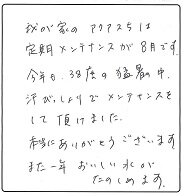 我が家の アクアス5は
定期メンテナンスが 8月です。
今年も、38度の 猛暑の中、
汗びっしょりで メンテナンスを
して 頂けました。
本当に ありがとう ございます。
また一年 おいしい水が
たのしめます。